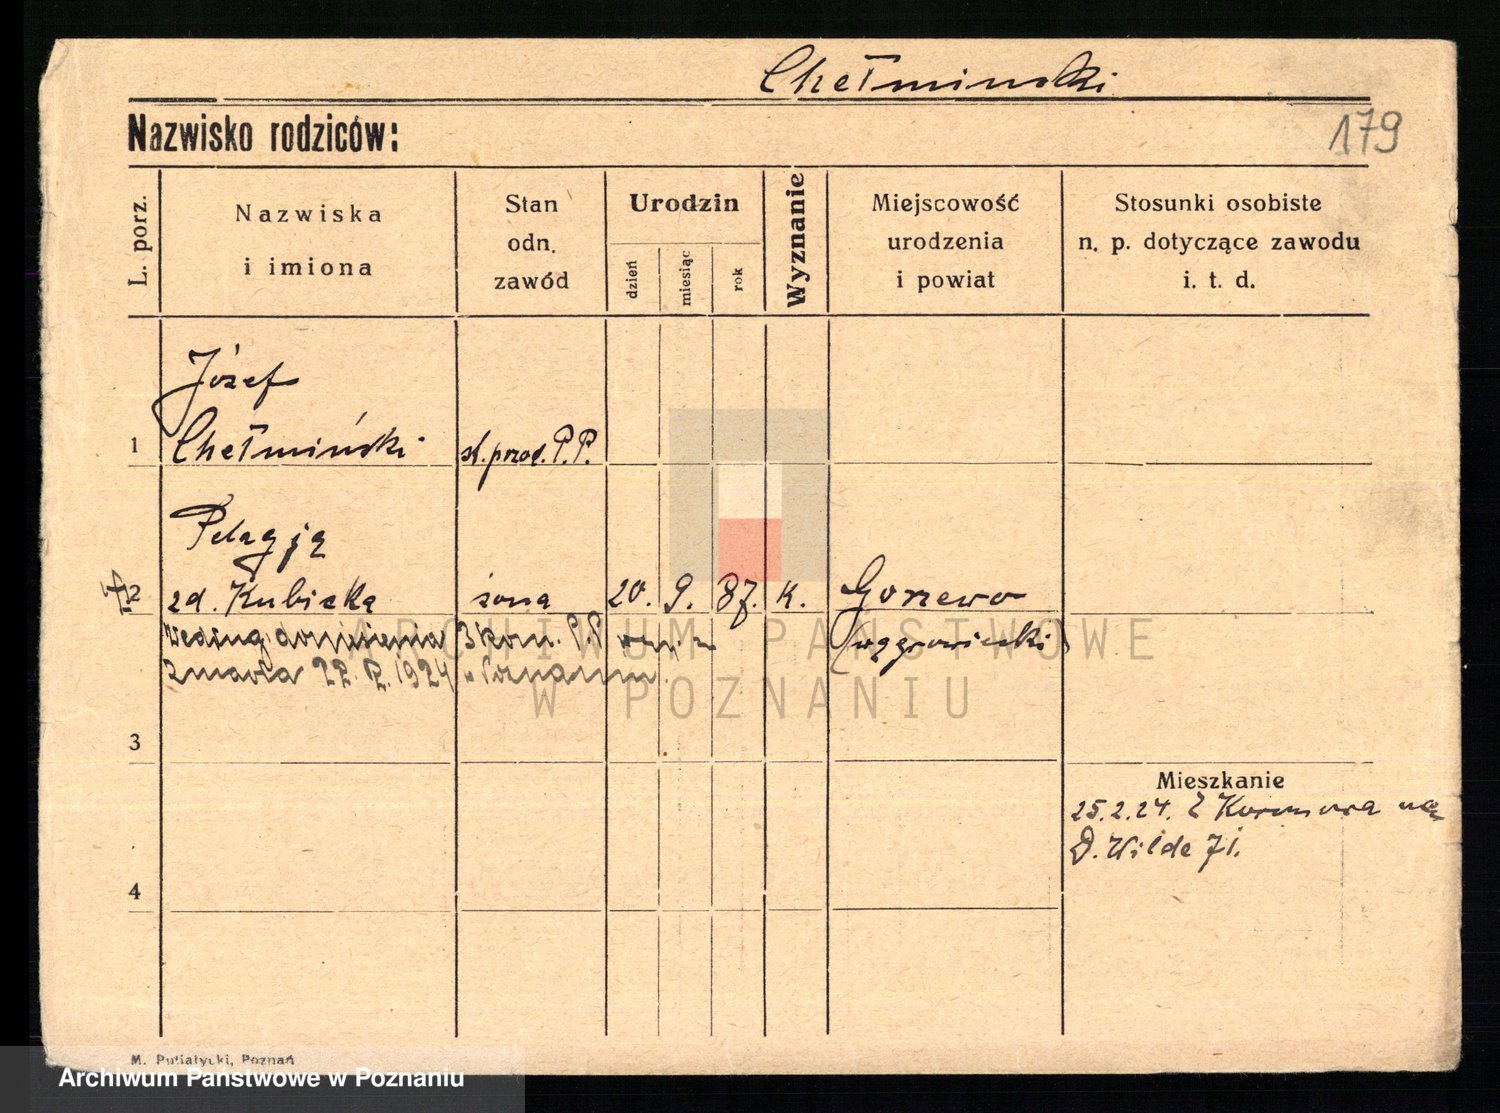 Chełminski
Nazwisko rodziców:
179
L. porz.
Nazwiska
i imiona
Stan
odn.
zawód
Urodzin
dzień
miesiąc
rok
Wyznanie
Miejscowość
urodzenia
i powiat
Stosunki osobiste
n. p. dotyczące zawodu
i. t. d.
Józef
1 Chełmiński st. przod. P.P.
Pelagja
2 zd. Kubicka żona 20. 9. 87. k. Gorzewo
według doniesienia 3 kom. P.P. (wągrowiecki)
zmarła 1924 w Poznaniu.
ARCHIWUM PAŃSTWOWE
W POZNANIU
3
Mieszkanie
25.2.24. Z Koronowa na
D. Wilde 71.
4
M. Putiatycki, Poznań
Archiwum Państwowe w Poznaniu